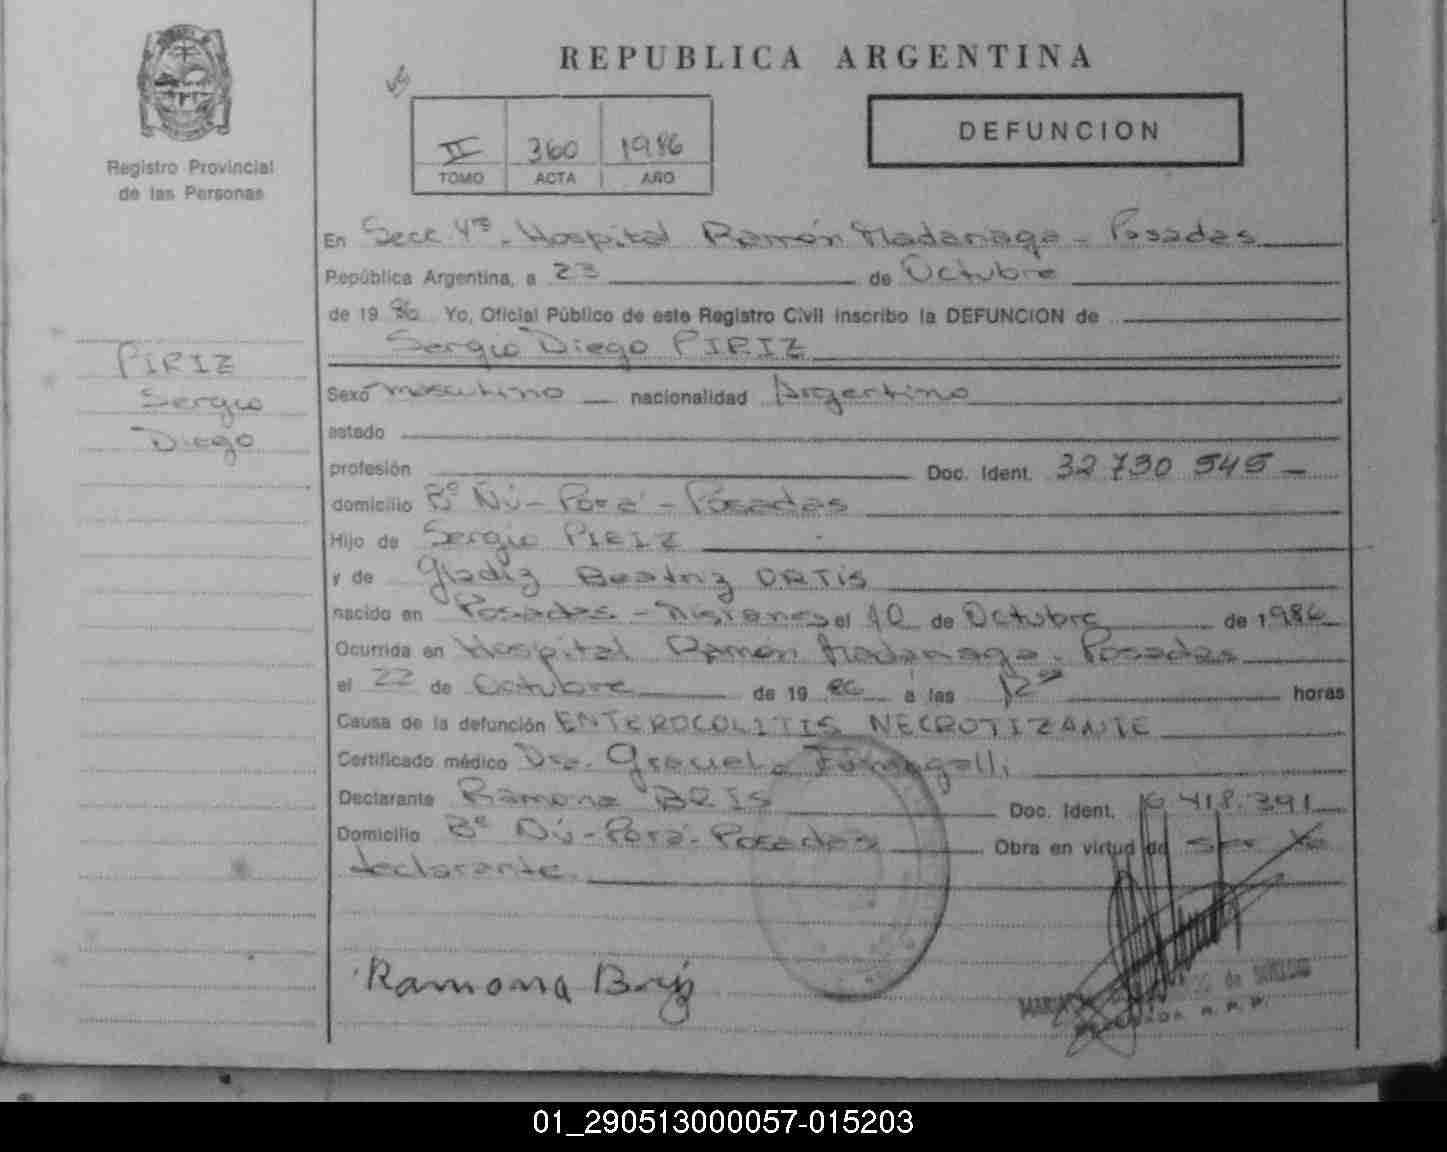 REPUBLICA ARGENTINA
Registro Provincial
de las Personas
II 360 1986
TOMO ACTA AÑO
DEFUNCION
En Secc. 4ta. Hospital Ramón Madariaga - Posadas
República Argentina, a 23 de Octubre
de 19 86 Yo, Oficial Público de este Registro Civil inscribo la DEFUNCION de
Sergio Diego PIRIZ
PIRIZ
Sergio
Diego
Sexo masculino nacionalidad Argentino
estado
profesión Doc. Ident. 32 730 545
domicilio Bº Ñú - Porá - Posadas
Hijo de Sergio PIRIZ
y de Gladiz Beatriz ORTIS
nacido en Posadas - Misiones el 10 de Octubre de 1986
Ocurrida en Hospital Ramón Madariaga. Posadas
el 22 de Octubre de 19 86 a las 12 horas
Causa de la defunción ENTEROCOLITIS NECROTIZANTE
Certificado médico Dra. Graciela
Declarante Ramona BRIS Doc. Ident. 6.418.391
Domicilio Bº Ñú - Porá - Posadas Obra en virtud de ser la
declarante.
Ramona Briz
R.P.P.
01_290513000057-015203